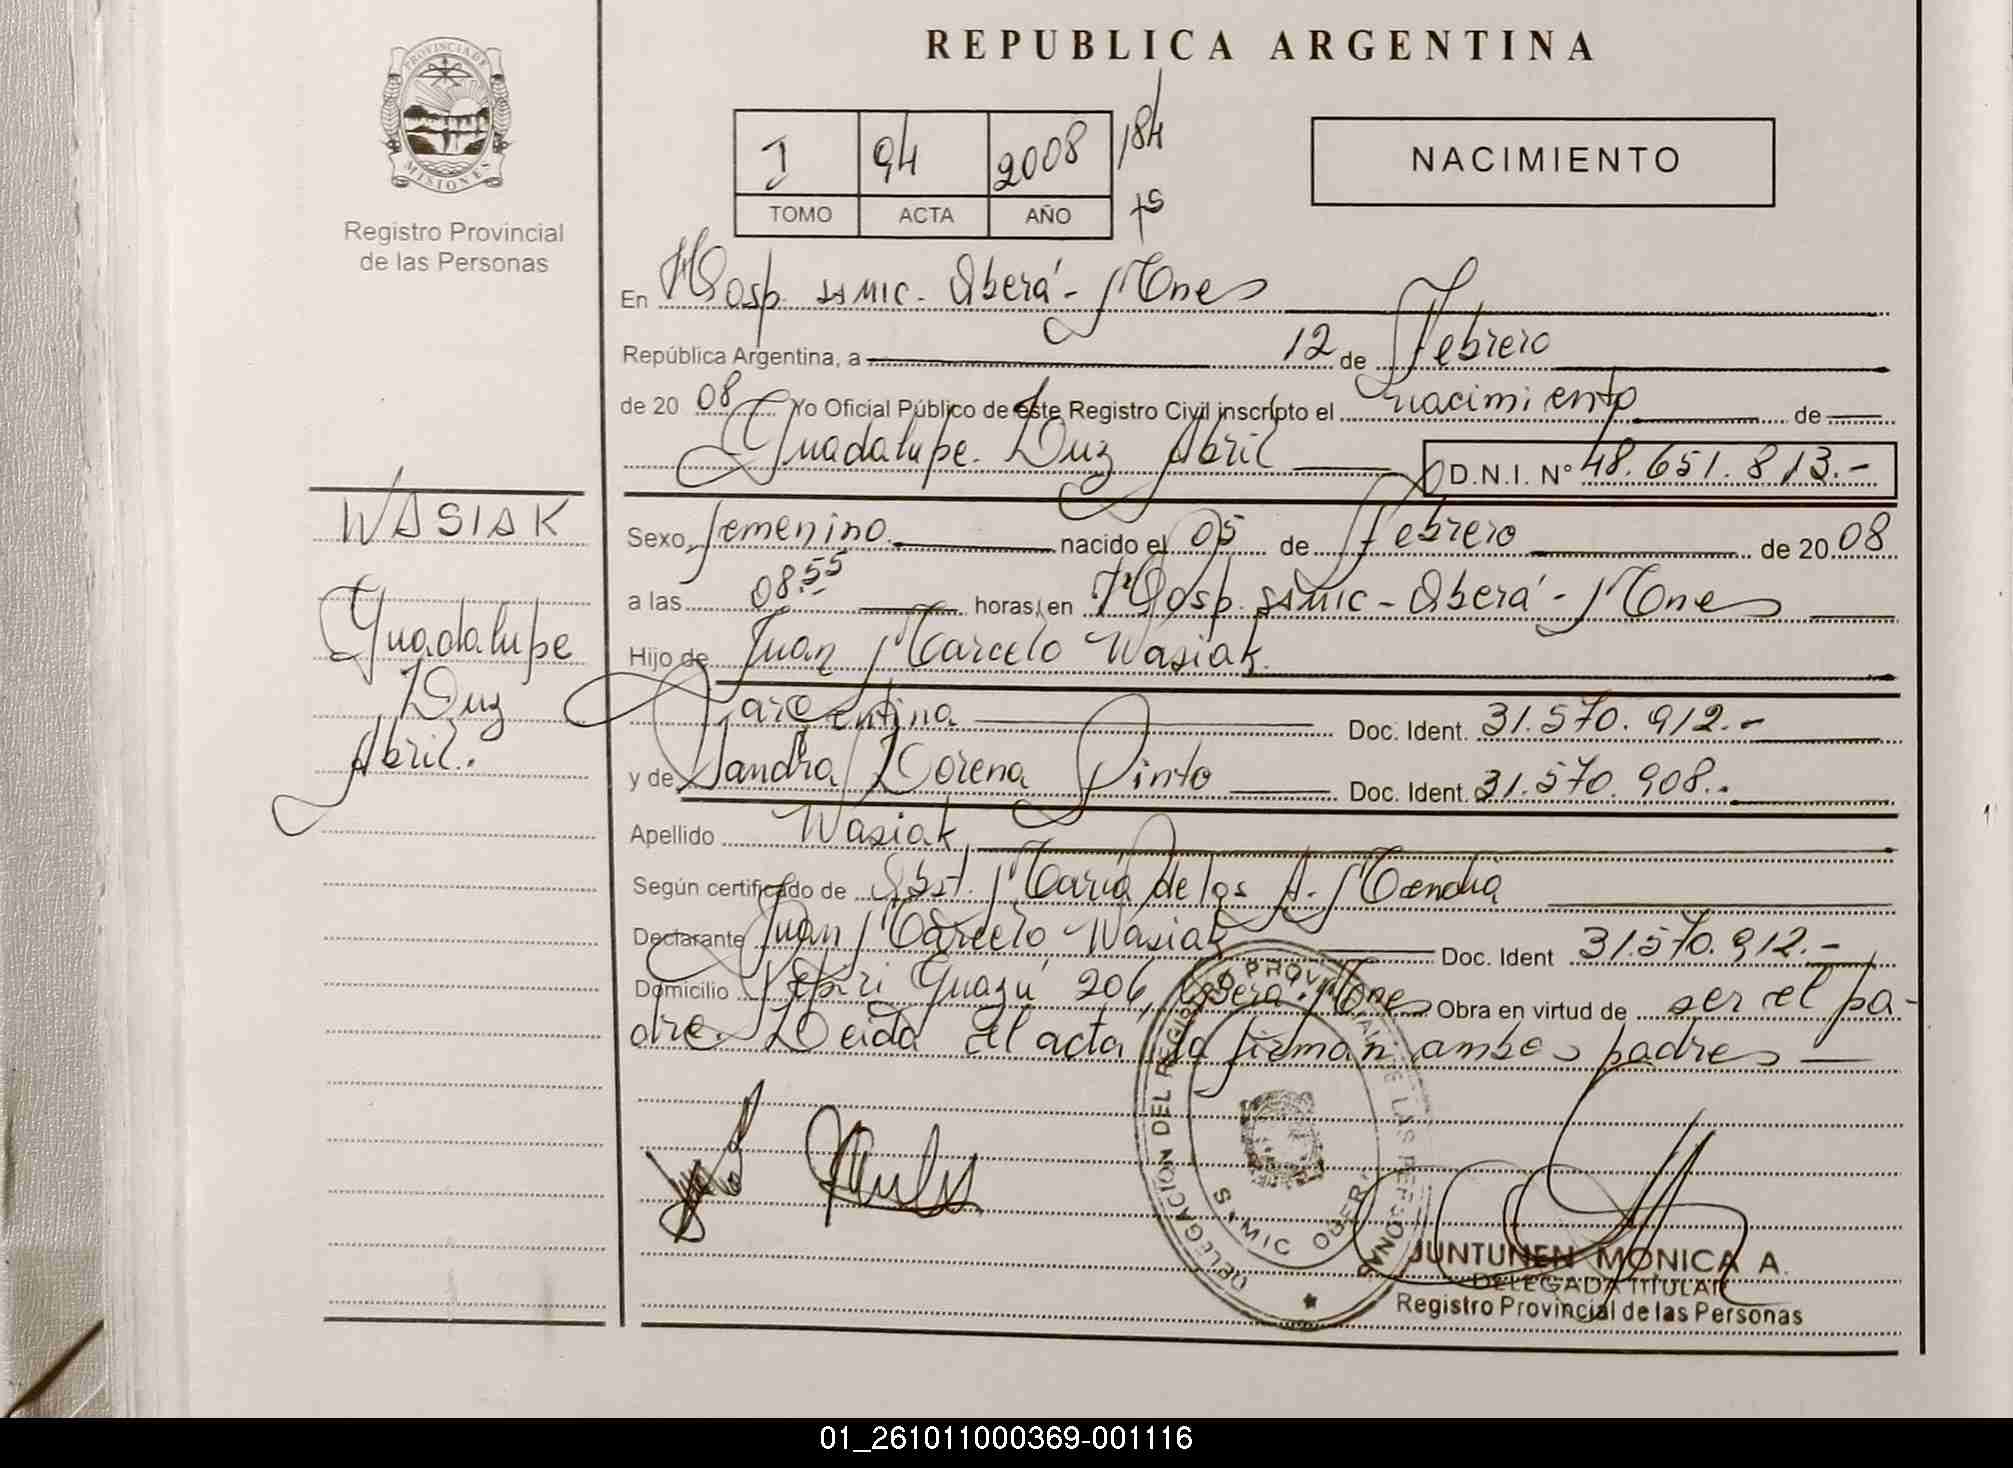 PROVINCIA DE
MISIONES
Registro Provincial
de las Personas
REPUBLICA ARGENTINA
I 94 2008 184
TOMO ACTA AÑO
NACIMIENTO
En Hosp. SAMIC - Oberá - Mnes
República Argentina, a 12 de Febrero
de 2008 Yo Oficial Público de este Registro Civil inscripto el nacimiento de
Guadalupe Luz Abril D.N.I. N° 48.651.813.-
WASIAK
Guadalupe
Luz
Abril.
Sexo femenino nacido el 05 de febrero de 2008
a las 08.55 horas, en Hosp. SAMIC - Oberá - Mnes
Hijo de Juan Marcelo Wasiak
argentina Doc. Ident. 31.570.912.-
y de Sandra Lorena Pinto Doc. Ident. 31.570.908.-
Apellido Wasiak
Según certificado de Obst. María de los A. Mendia
Declarante Juan Marcelo Wasiak Doc. Ident 31.570.912.-
Domicilio Guazú 206, Oberá. Mnes Obra en virtud de ser el pa-
dre. Leida el acta la firman ambos padres
DELEGACION DEL REGISTRO PROVINCIAL DE LAS PERSONAS
SAMIC OBERA
JUNTUNEN MONICA A.
DELEGADA TITULAR
Registro Provincial de las Personas
01_261011000369-001116